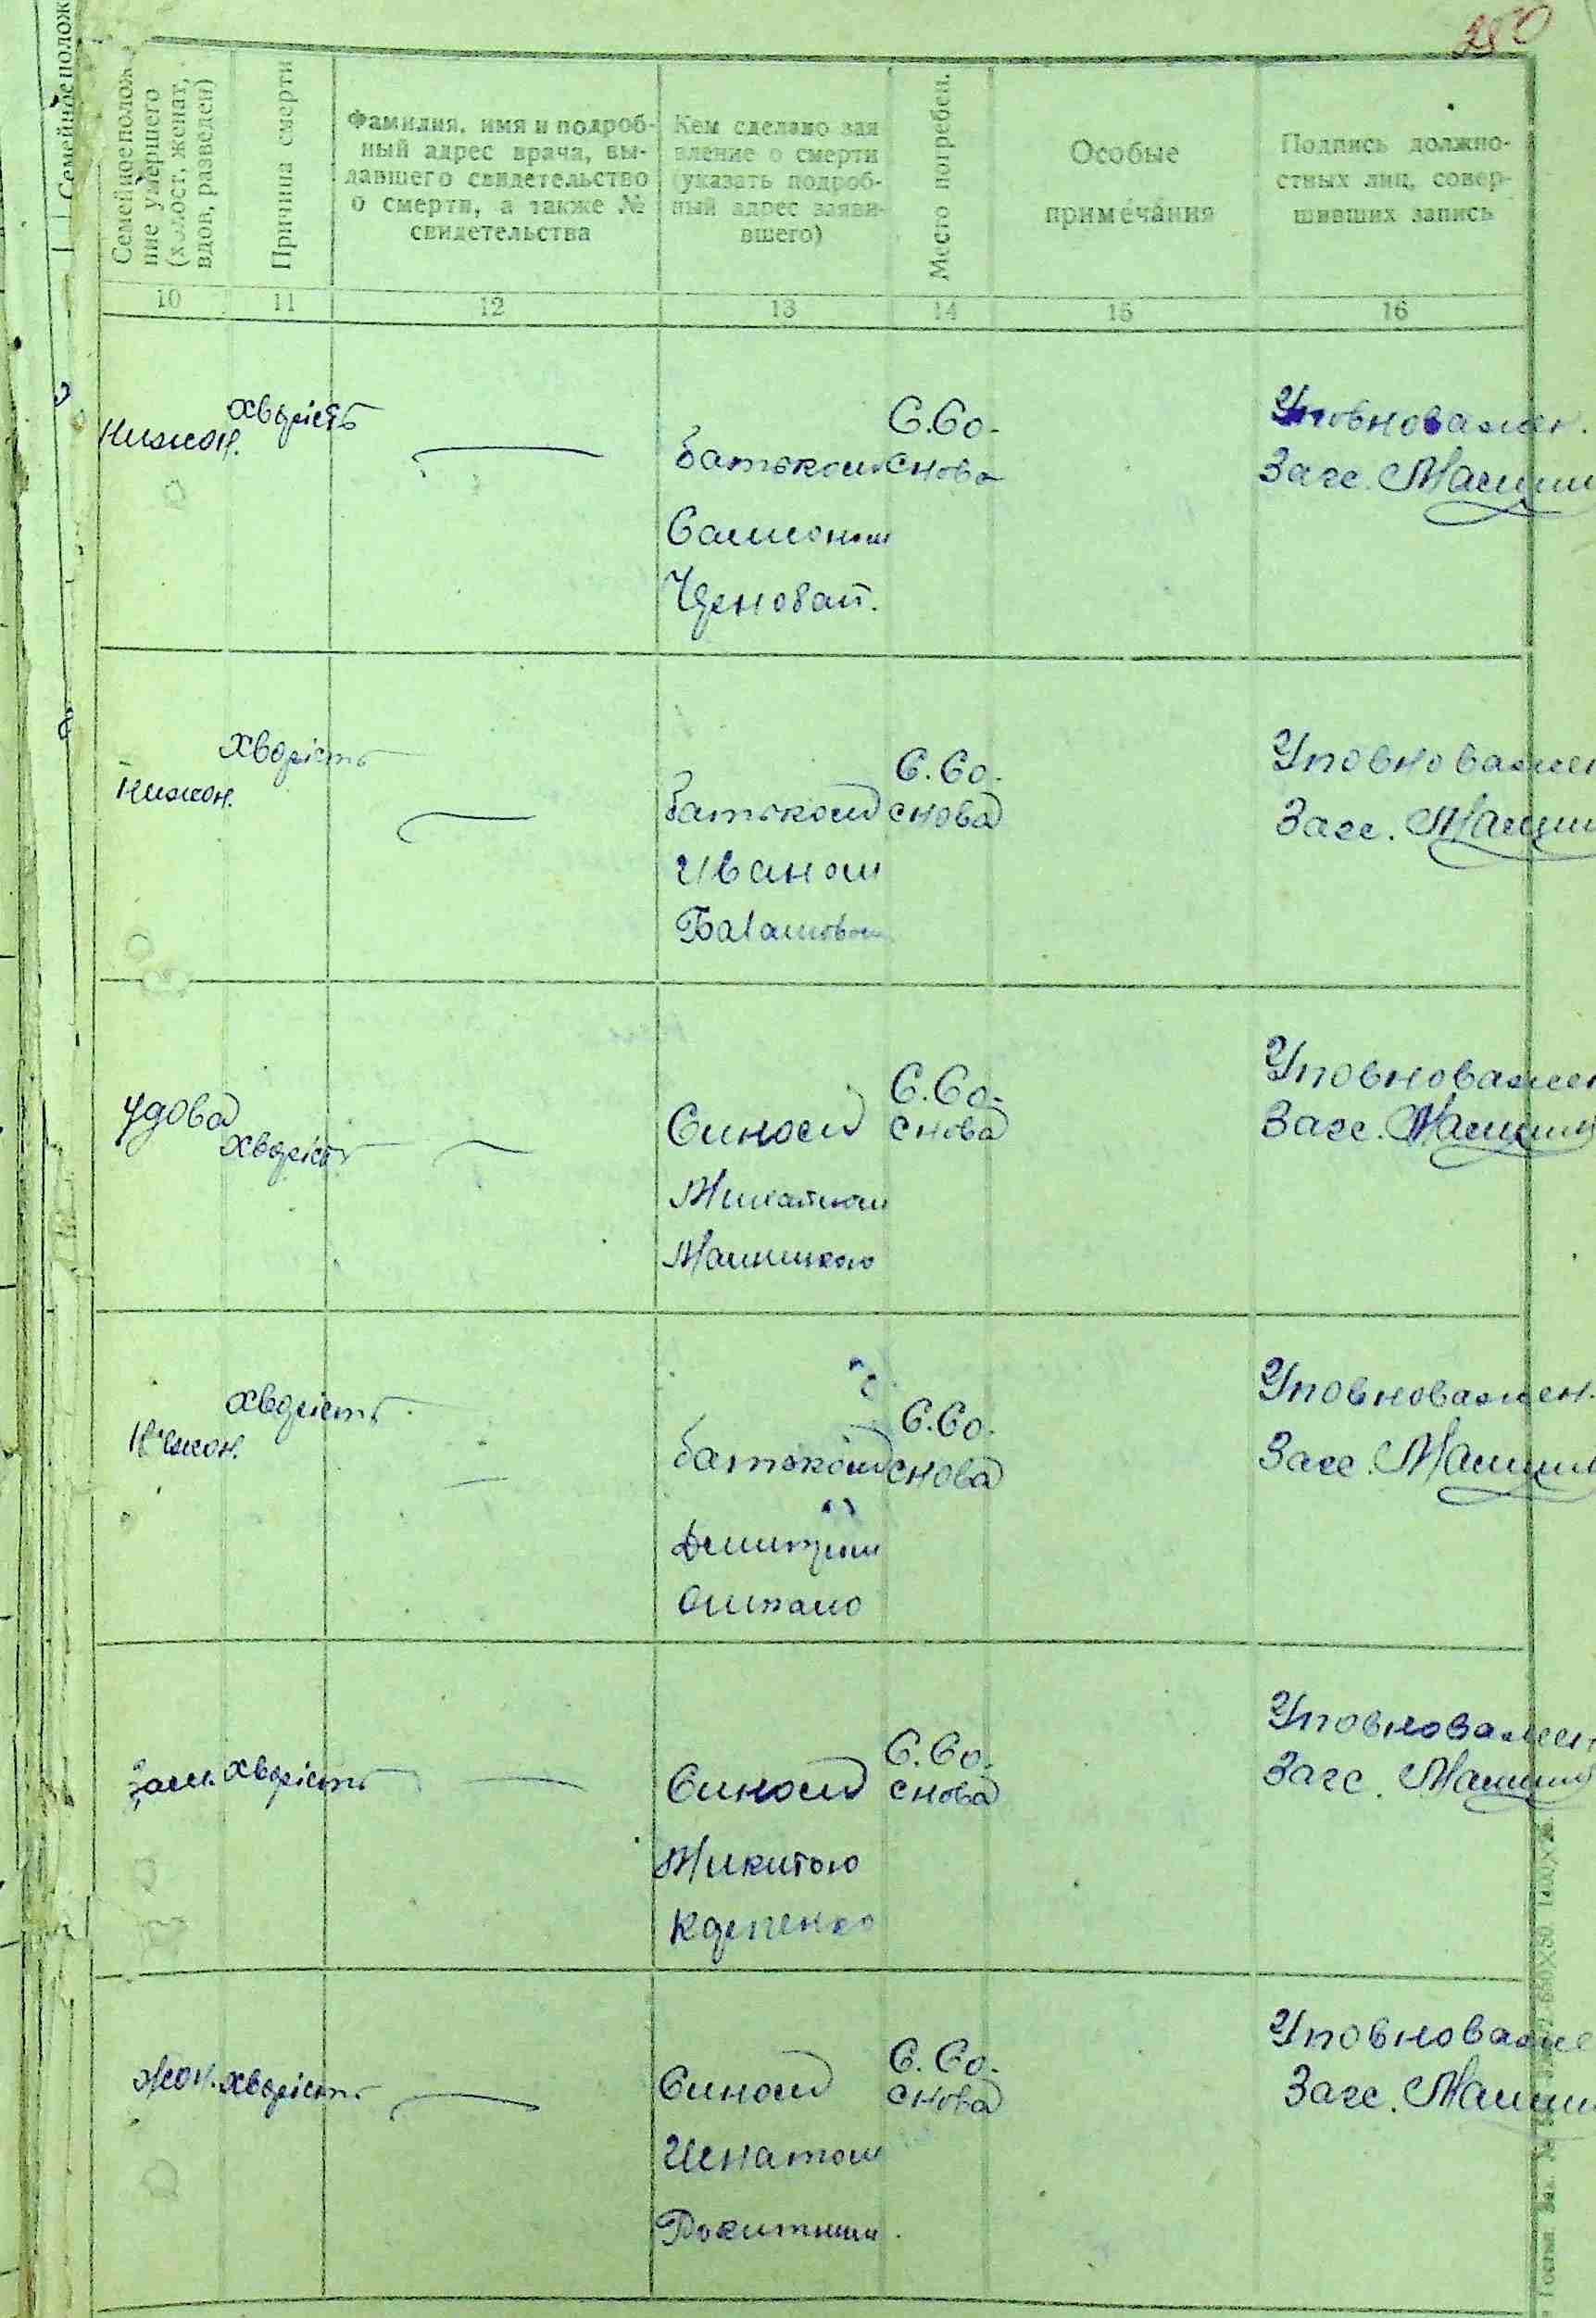 250
Семейное полож
Семейное положе-
ние умершего
(холост, женат,
вдов, разведен)
Причина смерти
Фамилия, имя и подроб-
ный адрес врача, вы-
давшего свидетельство
о смерти, а также №
свидетельства
Кем сделано зая
вление о смерти
(указать подроб-
ный адрес заяви-
вшего)
Место погребен.
Особые
примечания
Подпись должно-
стных лиц, совер-
шивших запись
10 11 12 13 14 15 16
Нижон. хворість
Батьком
С.Со-
снова
Уповноважен.
Загс.
нижон.
хворість
Батьком
Иваном
С.Со-
снова
Уповноважен
Загс.
удова
хворість
Сином
Михайлом
С.Со-
снова
Уповноважен
Загс.
нежон.
хворість
Батьком
С.Со-
снова
Уповноважен.
Загс.
зам. хворість
Сином
Микитою
С.Со-
снова
Уповноважен
Загс.
жон. хворість
Сином
Игнатом
С.Со-
снова
Уповноваже
Загс.